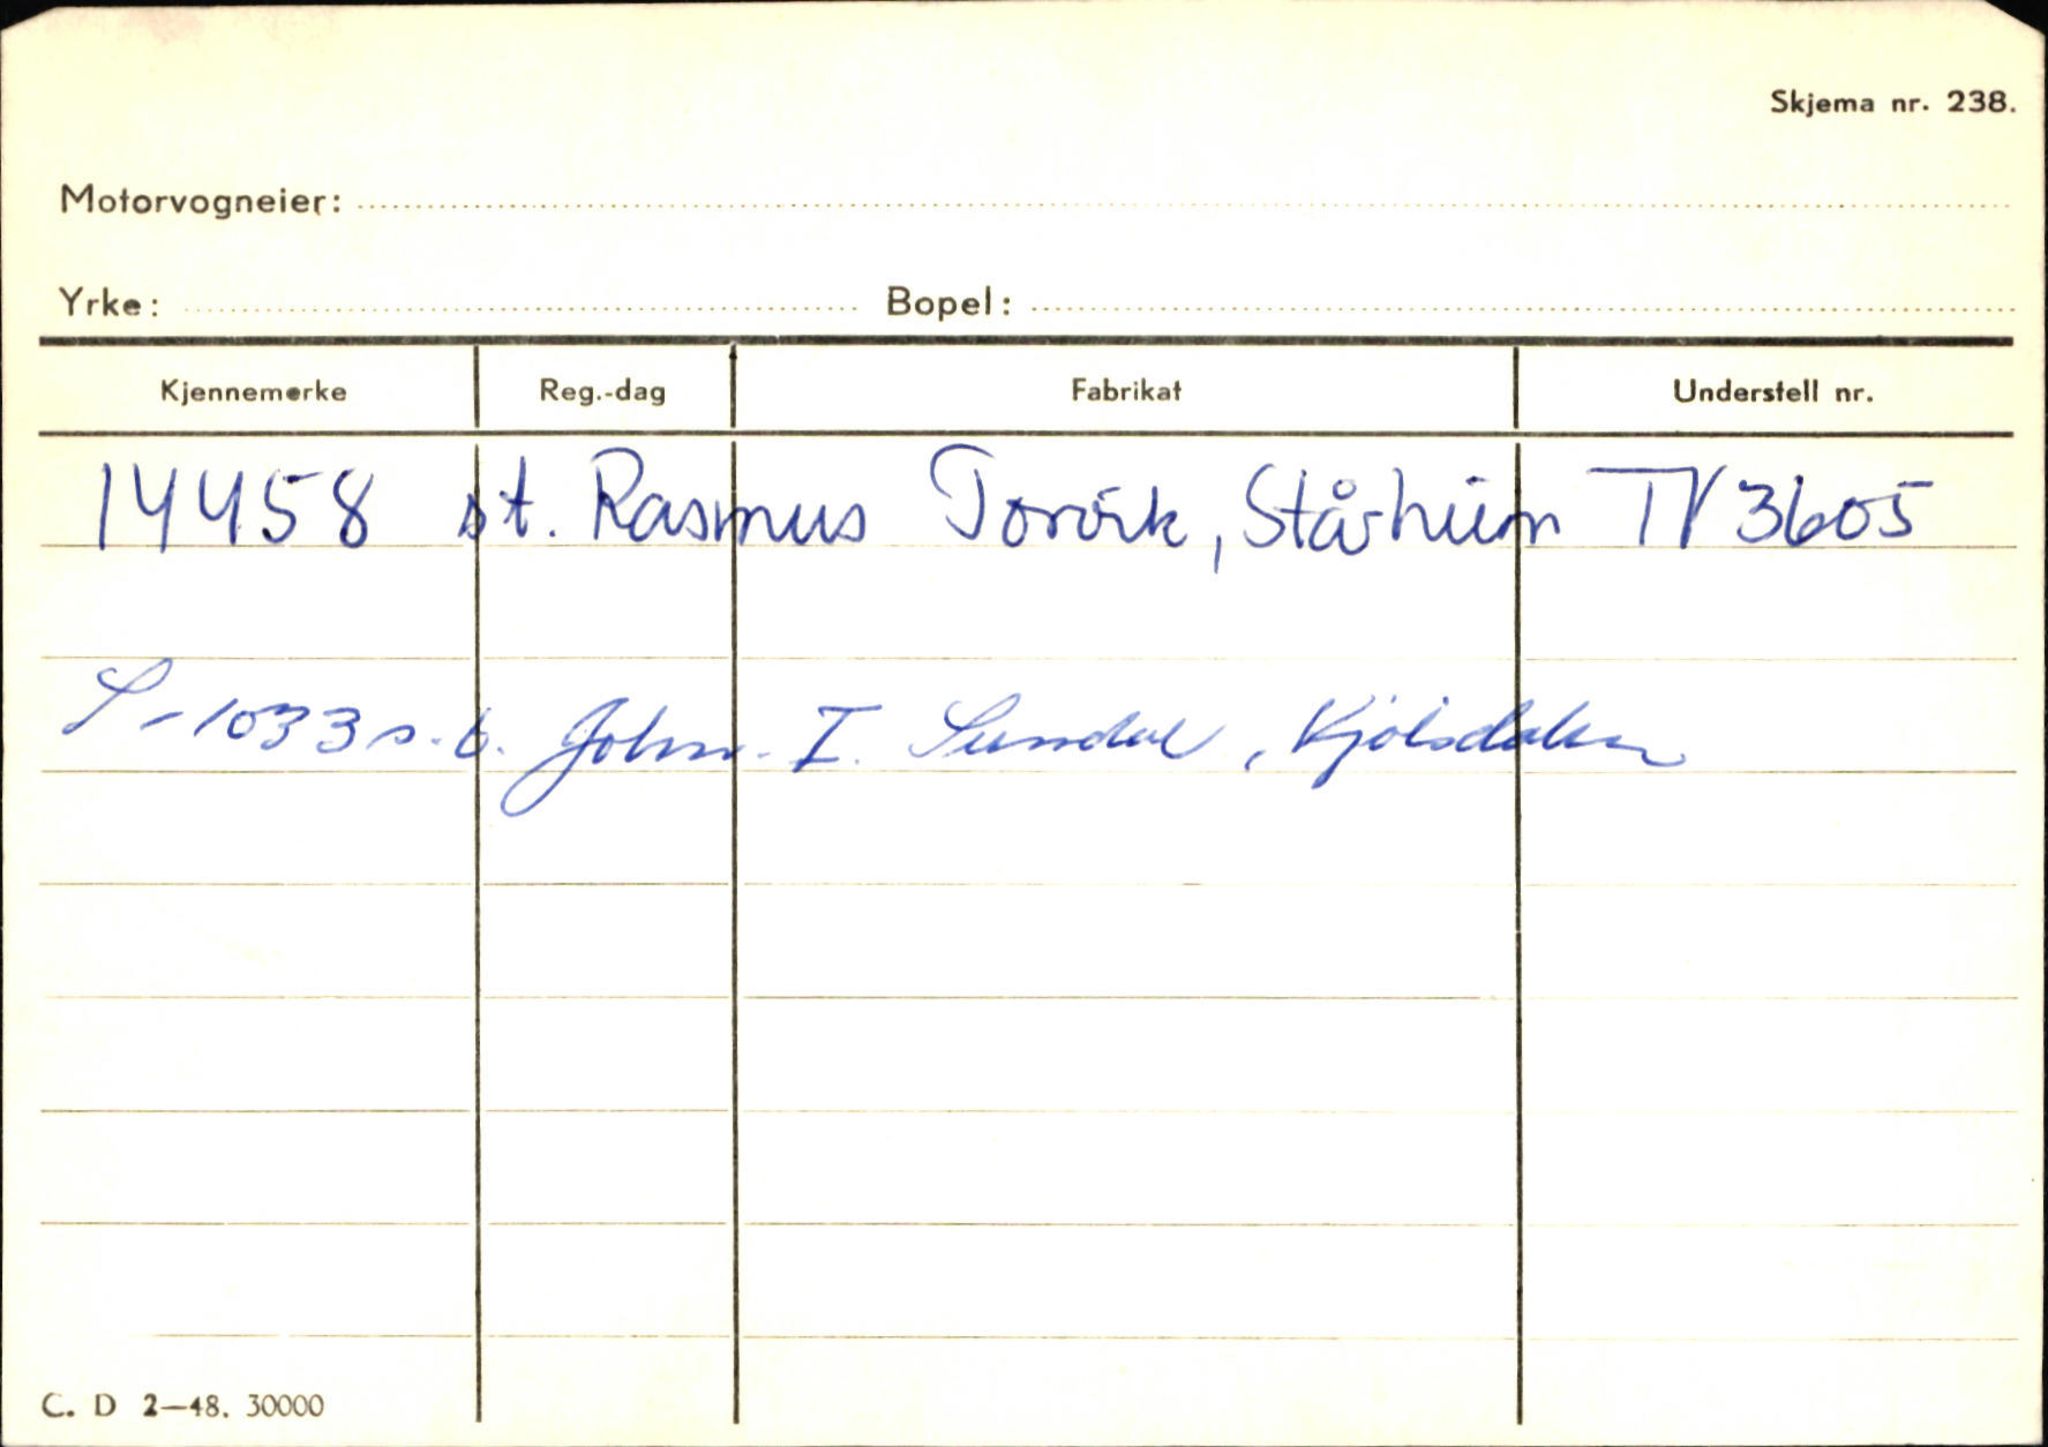 Skjema nr. 238.
Motorvogneier:
Yrke: Bopel:
Kjennemerke Reg.-dag Fabrikat Understell nr.
14458 st. Rasmus Torvik, Stårheim TV 3605
S-1033 s.b. John I. Sundal, Kjölsdalen
C. D 2—48. 30000